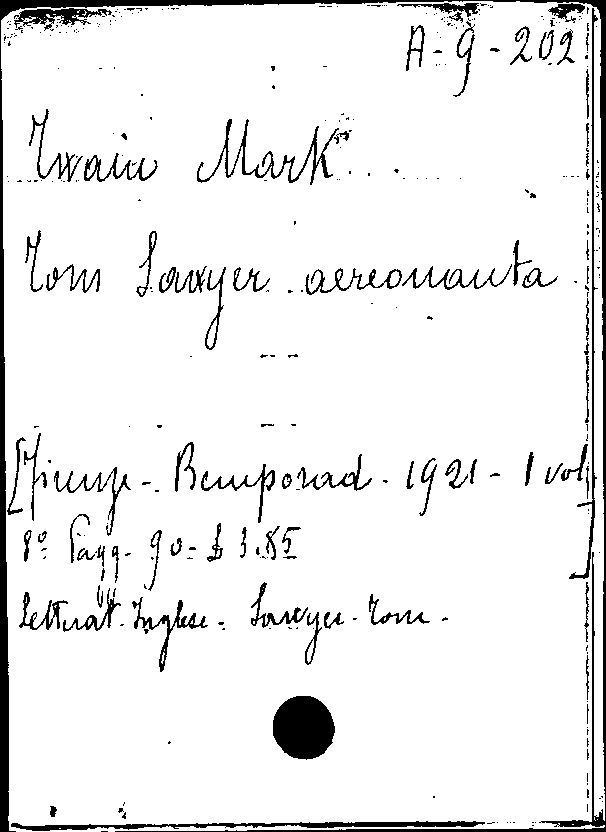 A-9-202
Twain Mark
Tom Sawyer aereonauta
[Firenze - Bemporad - 1921 - 1 vol.
8º Pagg. 90 - £ 3.85]
Letterat. Inglese - Sawyer Tom -